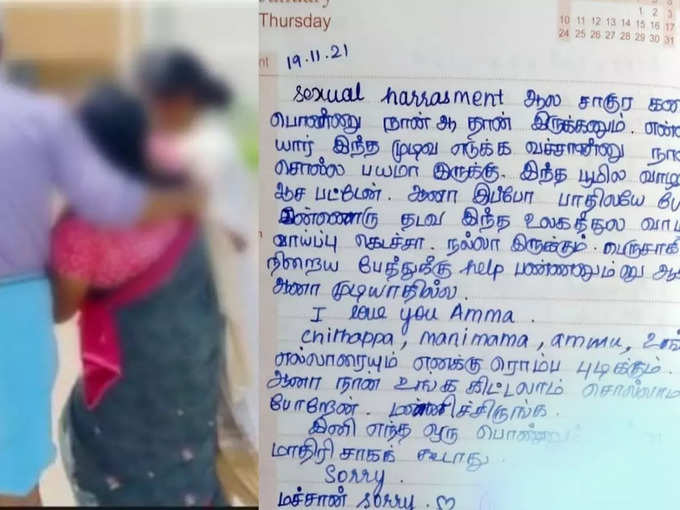 Thursday
1 2 3
10 11 12 13 14 15 16 17
24 25 26 27 28 29 30 31
19.11.21
sexual harrasment ஆல சாகுற
பொண்ணு நான் ஆ தான் இருக்கணும்.
யார் இந்த முடிவ எடுக்க வச்சான்னு நா
சொல்ல பயமா இருக்கு. இந்த பூமில வாழ
ஆச பட்டேன். ஆனா இப்போ பாதிலயே
இன்னொரு தடவ இந்த உலகத்துல
வாய்ப்பு கெடச்சா. நல்லா இருக்கும்.
நிறைய பேத்துக்கு help பண்ணனும்னு
ஆனா முடியாதில்ல.
I love you Amma.
chithappa, manimama, ammu,
எல்லாரையும் எனக்கு ரொம்ப புடிக்கும்.
ஆனா நான உங்க கிட்டலாம் சொல்லாம
போறேன். மன்னிச்சிருங்க.
இனி எந்த ஒரு
மாதிரி சாகக் கூடாது.
Sorry.
மச்சான் sorry. ♡